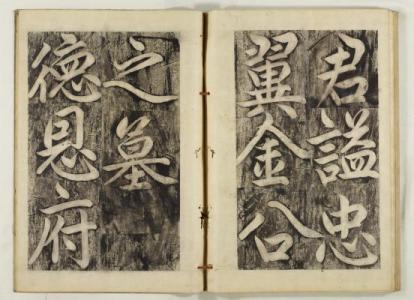 君謚忠
翼金公
之墓
德恩府